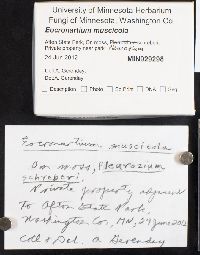 University of Minnesota Herbarium
Fungi of Minnesota, Washington Co
Eocronartium muscicola
Afton State Park, On moss,
Private property near park
24 Jun 2012 MIN929298
Gerenday
Det. A. Gerenday
Description Photo DNA
Eocronartium muscicola
On moss, Pleurozium
schreberi
Private property adjacent
to Afton State Park,
Washington Co., MN, 24 June 2012
Coll & Det. A Gerenday